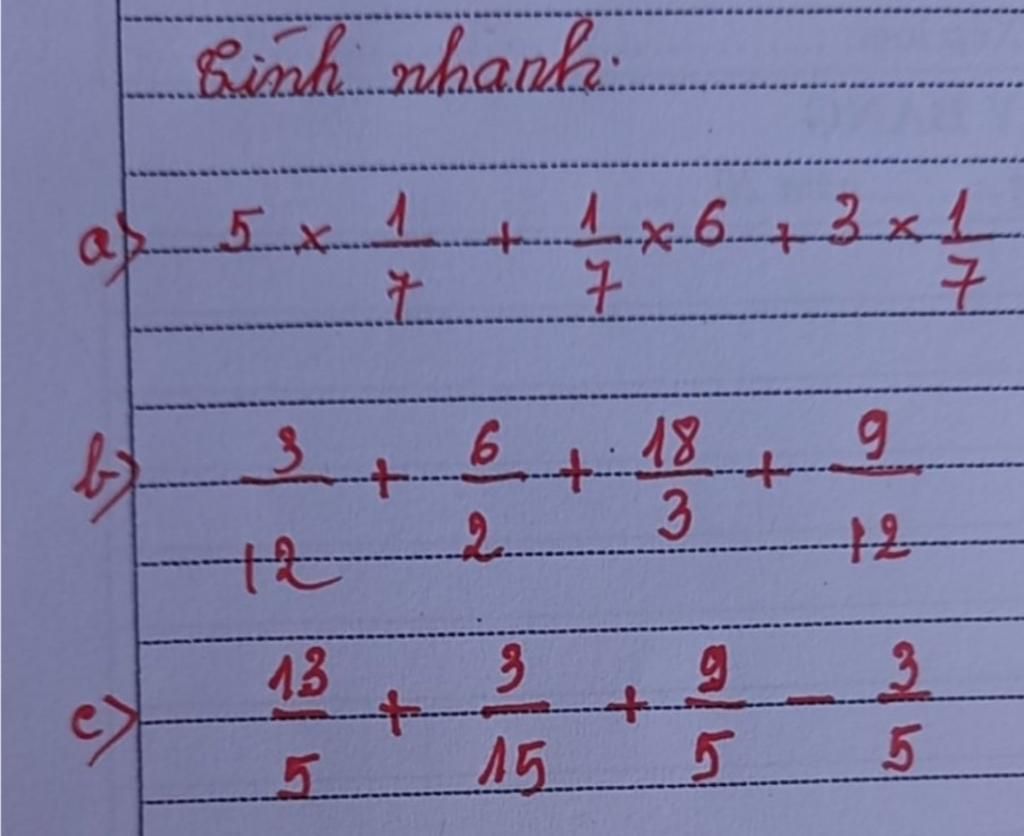 Tính nhanh.
a) 5 × 1/7 + 1/7 × 6 + 3 × 1/7
b) 3/12 + 6/2 + 18/3 + 9/12
c) 13/5 + 3/15 + 9/5 - 3/5